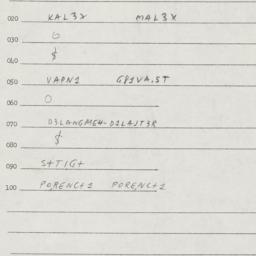 020 KAL3X MAL3X
030 6
040 $
050 VAPN1 G81VA.ST
060 O
070 D3LANGMEH-D1LAJT3R
080 $
090 S+TIG+
100 PORENC+1 PORENC+1